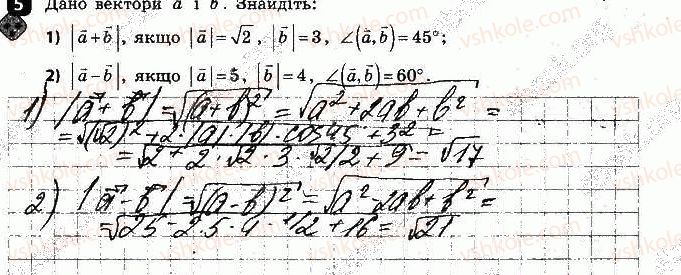 5 Дано вектори a⃗ і b⃗. Знайдіть:
1) |a⃗+b⃗|, якщо |a⃗|=√2, |b⃗|=3, ∠(a⃗,b⃗)=45°;
2) |a⃗−b⃗|, якщо |a⃗|=5, |b⃗|=4, ∠(a⃗,b⃗)=60°.
1) |a⃗+b⃗| = √(a+b)² = √a²+2ab+b² =
= √(√2)²+2·|a|·|b|·cos45+3² =
= √2+2·√2·3·√2/2+9 = √17
2) |a⃗−b⃗| = √(a-b)² = √a²-2ab+b² =
= √25-2·5·4·1/2+16 = √21